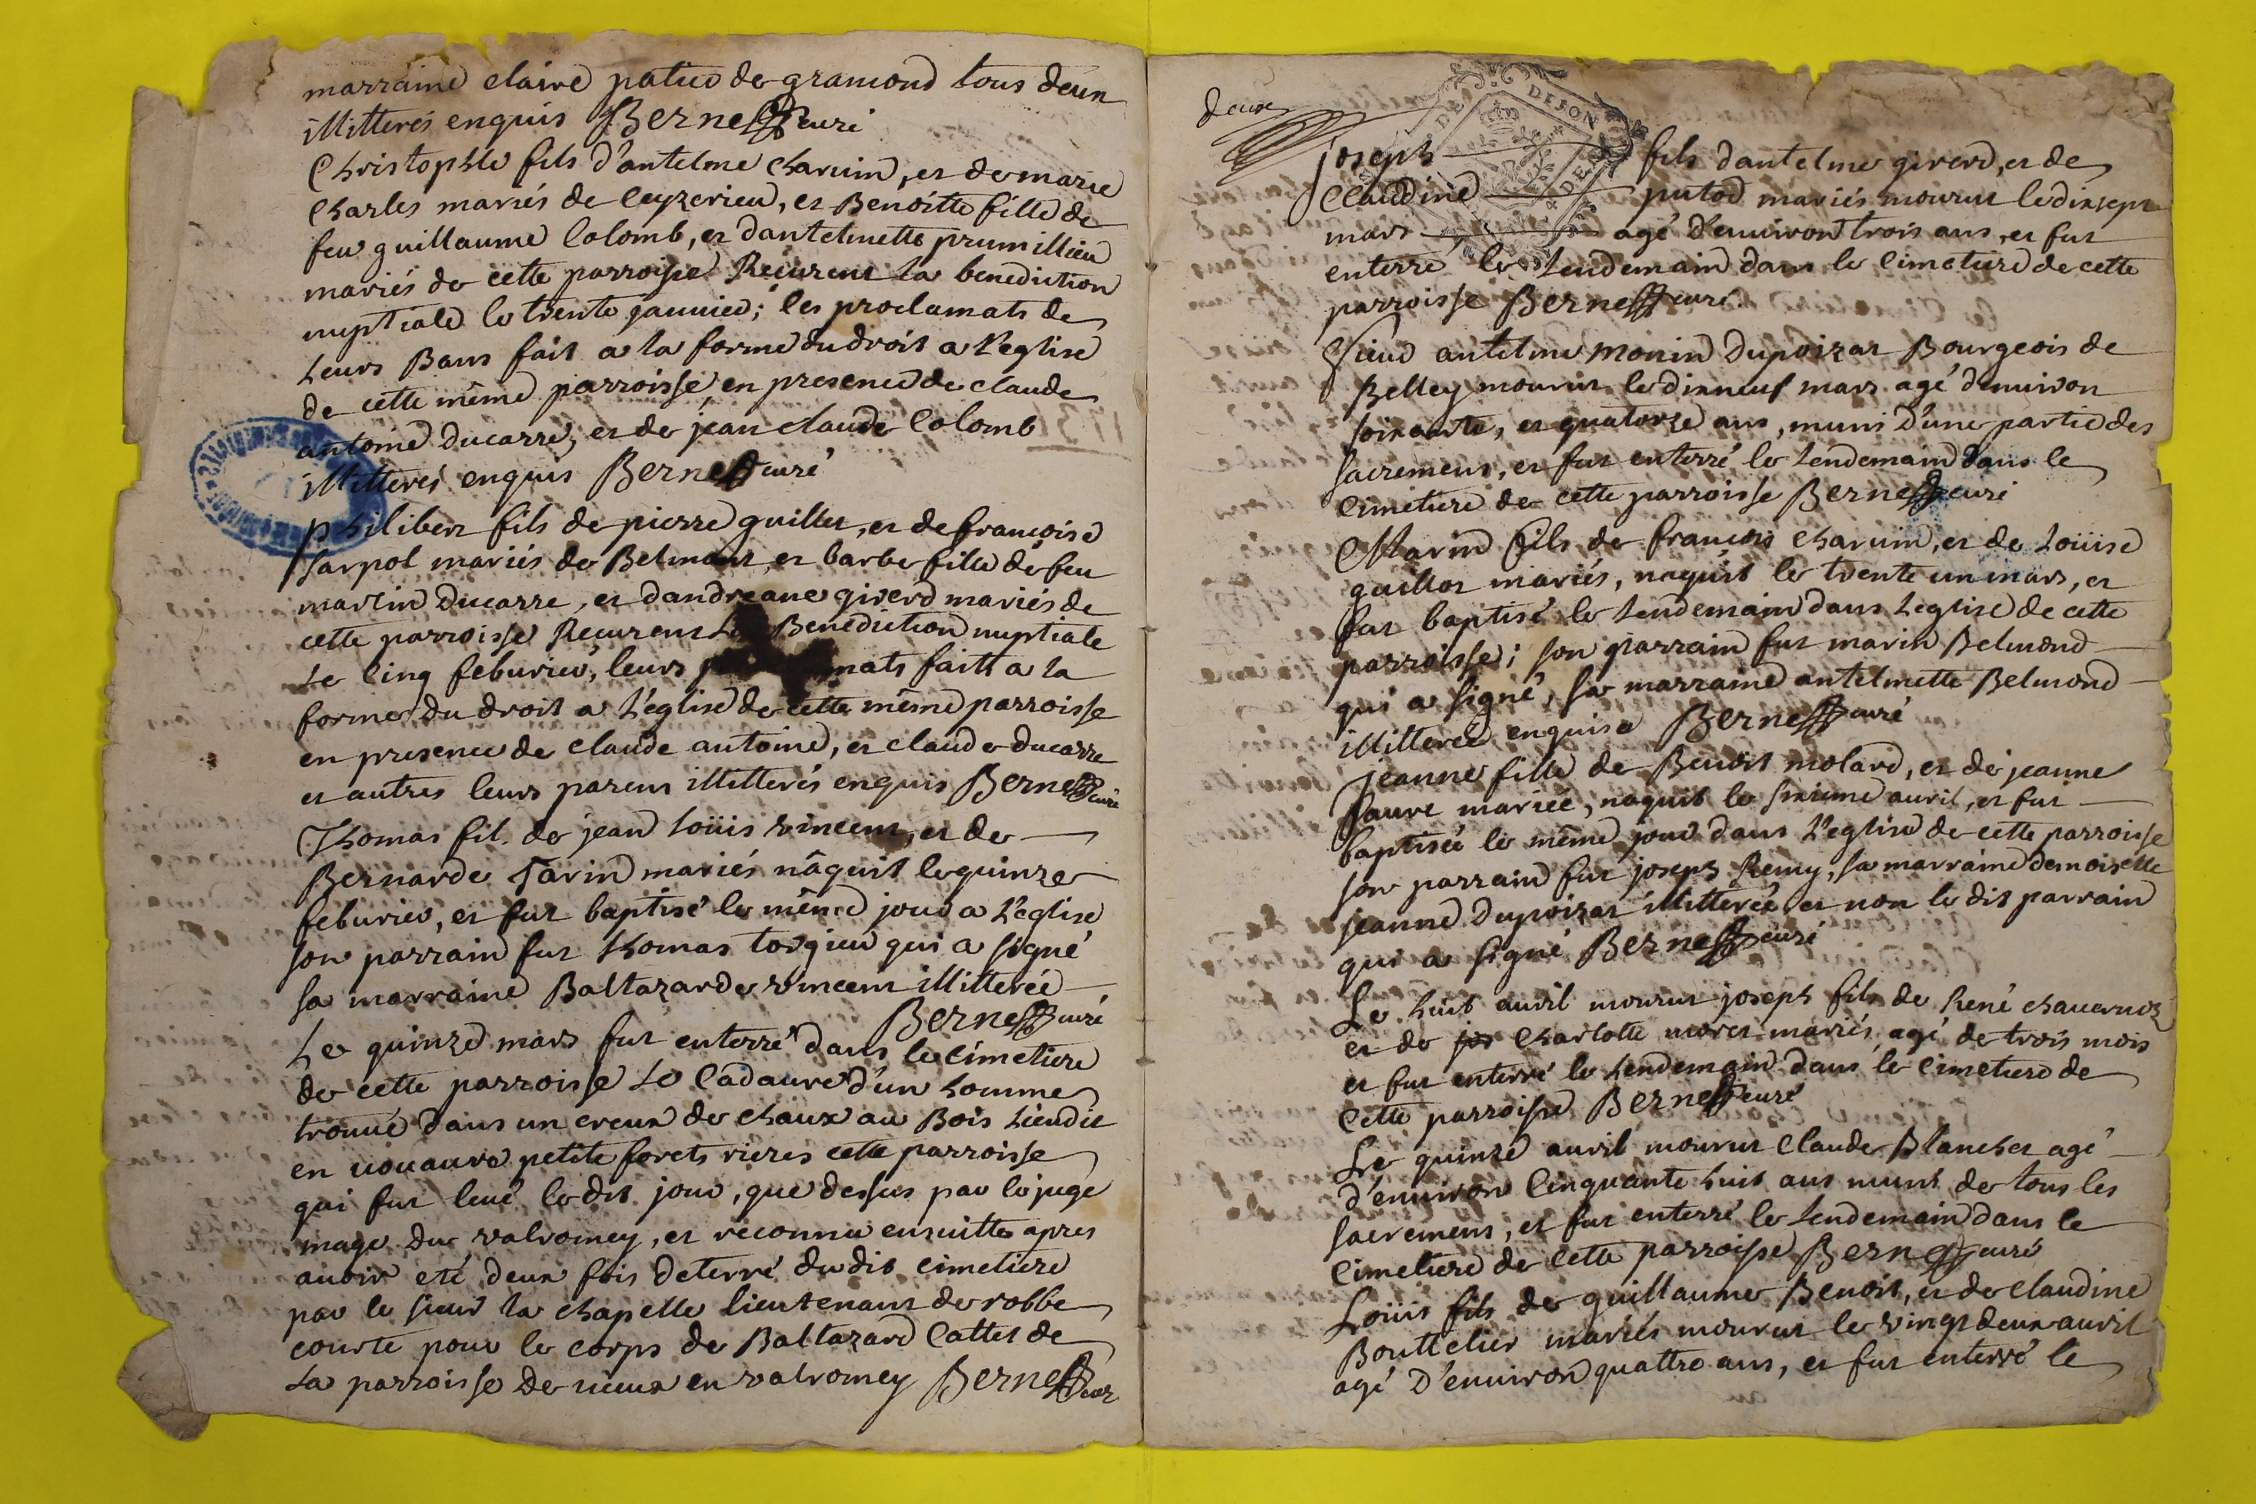 marraine claire patier de gramond tous deux
illitterés enquis Berne curé
Christophle fils d'antelme charuin, et de marie
Charles mariés de Ceyzerieu, et Benoitte fille de
feu guillaume Colomb, et dantelmette prumillieu
mariés de cette parroisse Recurent la benediction
nuptiale le trente januier; les proclamats de
Leurs Bans fait a la forme du droit a l'eglise
de cette même parroisse, en presence de claude
antoine ducarre, et de jean claude Colomb
illitterés enquis Berne curé
philiber fils de pierre guillet, et de françoise
Sarpol mariés de Belmont et barbe fille de feu
martin Ducarre, et dandreane girerd mariés de
cette parroisse Recurent La Benediction nuptiale
Le Cinq feburier, leurs mats faits a la
forme du droit a L'eglise de cette même parroisse
en presence de claude antoine, et claude ducarre
et autres leurs parens illitterés enquis Berne curé
Thomas fil. de jean Loüis vincent, et de
Bernarde Tavin mariés nâquit le quinze
feburier, et fut baptisé le même jour a L'eglise
son parrain fut thomas torgieu qui a signé
sa marraine Baltazarde vincent illitterée
Berne curé
Le quinze mars fut enterré dans le cimetiere
de cette parroisse Le Cadaure d'un homme
trouué dans un creux de chaux au Bois Liendit
en uouaure petite forets rieres cette parroisse
qui fut leué le dit jour, que dessus par le juge
mage du valromey, et reconnu ensuitte apres
auoir eté deux fois deterré du dit cimetiere
par le sieur la chapelle lieutenant de robbe
courte pour le corps de Baltazard Cattet de
La parroisse de uieux en valromey Berne cur
Deux
DE DIJON
joseph fils dantelme girerd, et de
Claudine putod mariés mourut le dixsept
mars agé d'enuiron trois ans, et fut
enterré le Lendemain dans le Cimetiere de cette
parroisse Berne curé.
Sieur antelme Monin Dupoizat Bourgeois de
Belley mourut le dixneuf mars agé denuiron
soixante, et quatorze ans, muni d'une partie des
sacremens, et fut enterré le Lendemain dans le
Cimetiere de cette parroisse Berne curé
Marin fils de francois charuin, et de Loüise
guillot mariés, naquit le trente un mars, et
fut baptisé le Lendemain dans L'eglise de cette
parroisse; son parrain fut marin Belmond
qui a signé, sa marraine antelmette Belmond
illitterée enquise Berne curé
Jeanne fille de Benoit molard, et de jeanne
Faure mariée, naquit le sixieme auril, et fut
baptisée le même jour dans L'eglise de cette parroisse
son parrain fut joseph Remy, sa marraine demoiselle
jeanne Dupoizat illitterée et non le dit parrain
qui a signé Berne curé
Le huit auril mourut joseph fils de René chauernoz
et de jos Charlotte moret mariés, agé de trois mois
et fut enterré le Lendemain dans le Cimetiere de
Cette parroisse Berne curé
Le quinze auril mourut Claude Blanchet agé
d'enuiron Cinquante huit ans muni de tous les
sacremens, et fut enterré le Lendemain dans le
Cimetiere de Cette parroisse Berne curé
Loüis fils de guillaume Benoit, et de Claudine
Bouttelier mariés mourut le vingt deux auril
agé d'enuiron quattre ans, et fut enterré le